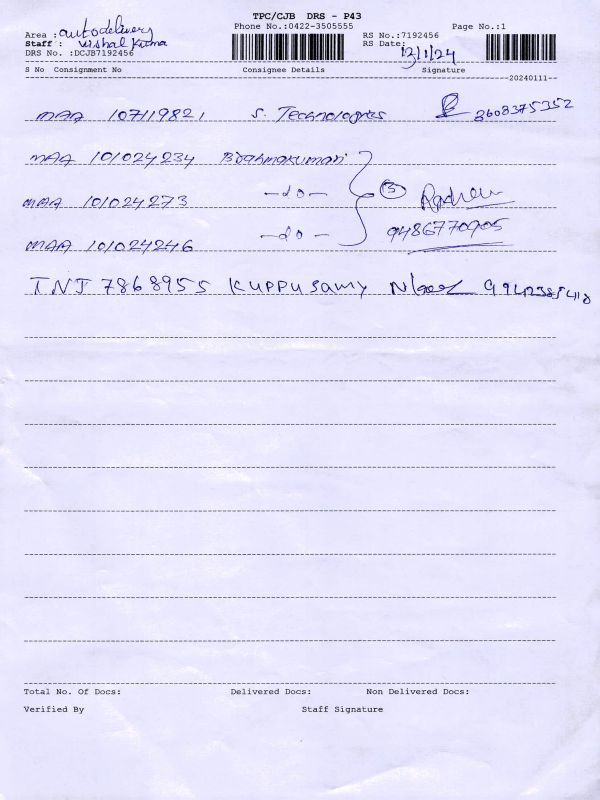 TPC/CJB DRS - P43
Area : autodelivery Phone No.:0422-3505555 RS No.:7192456 Page No.:1
Staff : Vishal Kuma RS Date: 13/1/24
DRS No. :DCJB7192456
S No Consignment No Consignee Details Signature
20240111
MAA 107119821 S. Technologies 3608375352
MAA 101024234 Brahmakumari
MAA 101024273 -do- (3)
MAA 101024246 -do- 9486770905
TNJ 7868955 Kuppusamy 9942385410
Total No. Of Docs: Delivered Docs: Non Delivered Docs:
Verified By Staff Signature